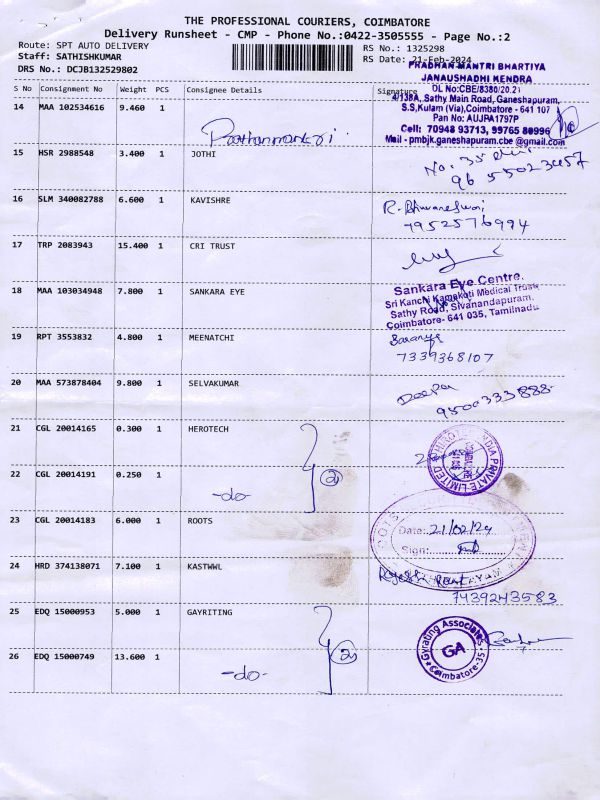 THE PROFESSIONAL COURIERS, COIMBATORE
Delivery Runsheet - CMP - Phone No.:0422-3505555 - Page No.:2
Route: SPT AUTO DELIVERY
Staff: SATHISHKUMAR
DRS No.: DCJB132529802
RS No.: 1325298
RS Date: 21-Feb-2024
S No Consignment No Weight PCS Consignee Details Signature
PRADHAN MANTRI BHARTIYA
JANAUSHADHI KENDRA
DL No:CBE/8380/20.21
4/138A, Sathy Main Road, Ganeshapuram,
S.S,Kulam (Via),Coimbatore - 641 107
Pan No: AUJPA1797P
Cell: 70948 93713, 99765 80996
Mail - pmbjk.ganeshapuram.cbe@gmail.com
14 MAA 102534616 9.460 1
15 HSR 2988548 3.400 1 JOTHI
96 55023457
16 SLM 340082788 6.600 1 KAVISHRE
R. Bhuvaneshwari
7952576994
17 TRP 2083943 15.400 1 CRI TRUST
18 MAA 103034948 7.800 1 SANKARA EYE
Sankara Eye Centre,
Sri Kanchi Kamakoti Medical Trust
Sathy Road, Sivanandapuram,
Coimbatore- 641 035, Tamilnadu
19 RPT 3553832 4.800 1 MEENATCHI
Saranya
7339368107
20 MAA 573878404 9.800 1 SELVAKUMAR
Deepa
9500333888
21 CGL 20014165 0.300 1 HEROTECH
22 CGL 20014191 0.250 1
-do-
2
PRIVATE LIMITED
23 CGL 20014183 6.000 1 ROOTS
ROOTS
Date: 21/02/24
Sign:
24 HRD 374138071 7.100 1 KASTWWL
7439243583
25 EDQ 15000953 5.000 1 GAYRITING
Gyrating Associates
GA
Coimbatore-35
26 EDQ 15000749 13.600 1
-do-
2